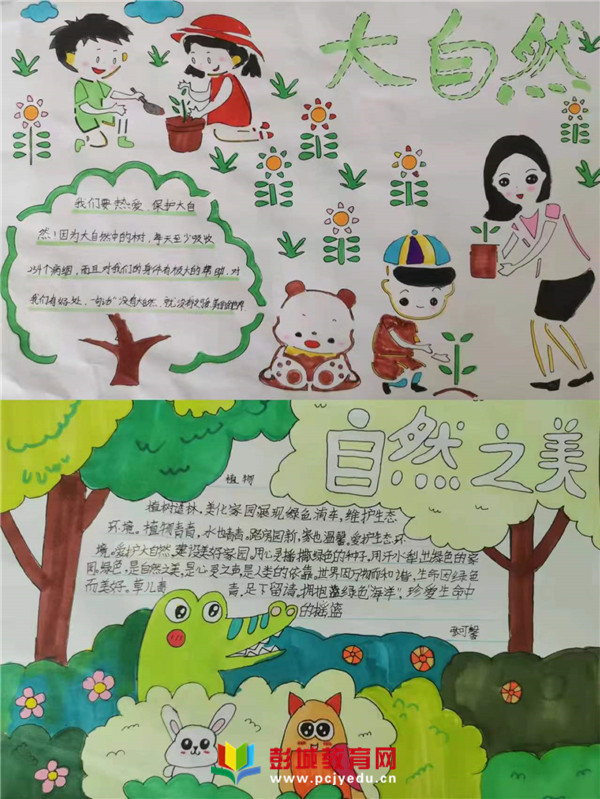 大自然
我们要热爱、保护大自
然！因为大自然中的树，每天至少吸收
而且对我们的身体有极大的帮助，对
我们有好处，没有大自然，就没有
自然之美
植物
植树造林，美化家园展现绿色満车，维护生态
环境。植物青青，水也清。路爱也温馨。爱护生态环
境。爱护大自然，建设美好家园，用心灵播撒绿色的种子，用汗水
园，绿色，是自然之美，是心灵之是人类的依靠。世界因万物而和谐，生命因绿色
而美好。草儿青青，足下留情，拥抱绿色海洋"，珍爱生命中
的摇篮
彭城教育网
www.pcjyedu.cn